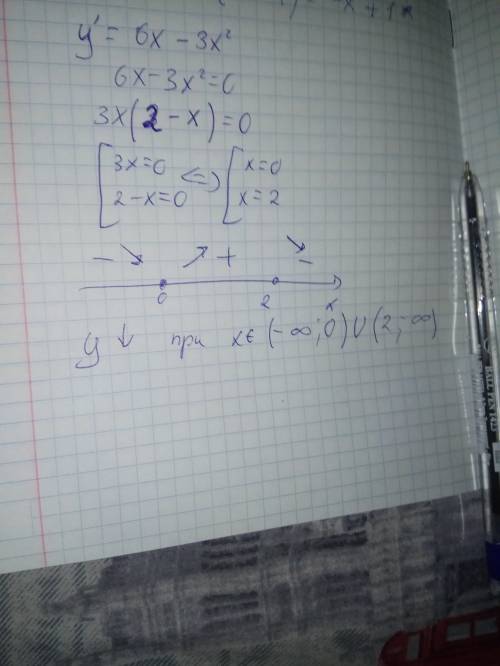 y' = 6x - 3x²
6x - 3x² = 0
3x(2 - x) = 0
[3x = 0 <=> [x = 0
[2 - x = 0 [x = 2
- ↘ ↗ + ↘ -
0 2 x
y ↓ при x ∈ (-∞; 0) U (2; -∞)